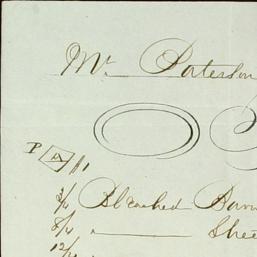 Mr. Paterson
P A #1
3/4 Bleached Barn
8/4 " Shee
12/4 "